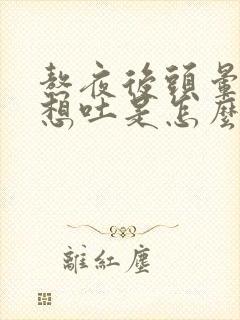 熬夜後頭暈
想吐是怎麼
離紅塵